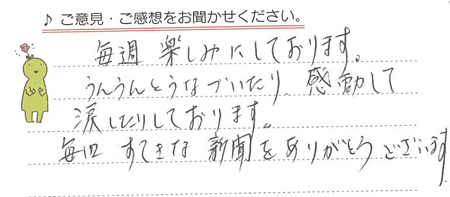 ♪ ご意見・ご感想をお聞かせください。
毎週 楽しみにしております。
うんうんとうなづいたり、感動して
涙したりしております。
毎回 すてきな 新聞を ありがとう ございます